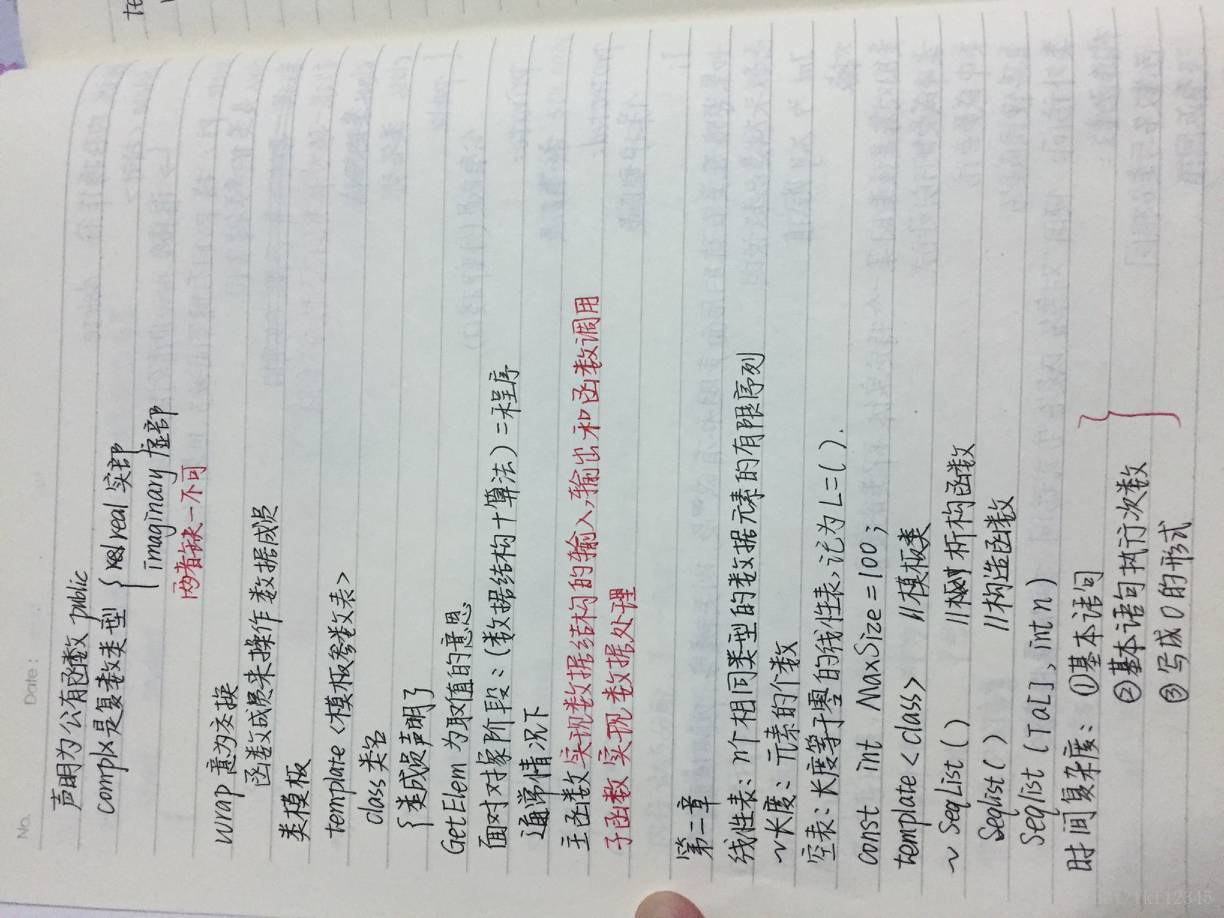 No.
Date:
声明为公有函数 public
complx是复数类型 { real 实部
imaginary 虚部
两者缺一不可
wrap 意为交换
函数成员来操作数据成员
类模板
template <模板参数表>
class 类名
{类成员声明}
GetElem 为取值的意思
面对对象阶段:(数据结构+算法)=程序
通常情况下
主函数实现数据结构的输入,输出和函数调用
子函数实现数据处理
第二章
线性表: n个相同类型的数据元素的有限序列
~长度: 元素的个数
空表:长度等于零的线性表,记为L=( ).
const int MaxSize=100;
template<class> //模板类
~SeqList() //析构函数
Seqlist() //构造函数
Seqlist(Ta[],int n)
时间复杂度: ①基本语句
②基本语句执行次数
③写成O的形式